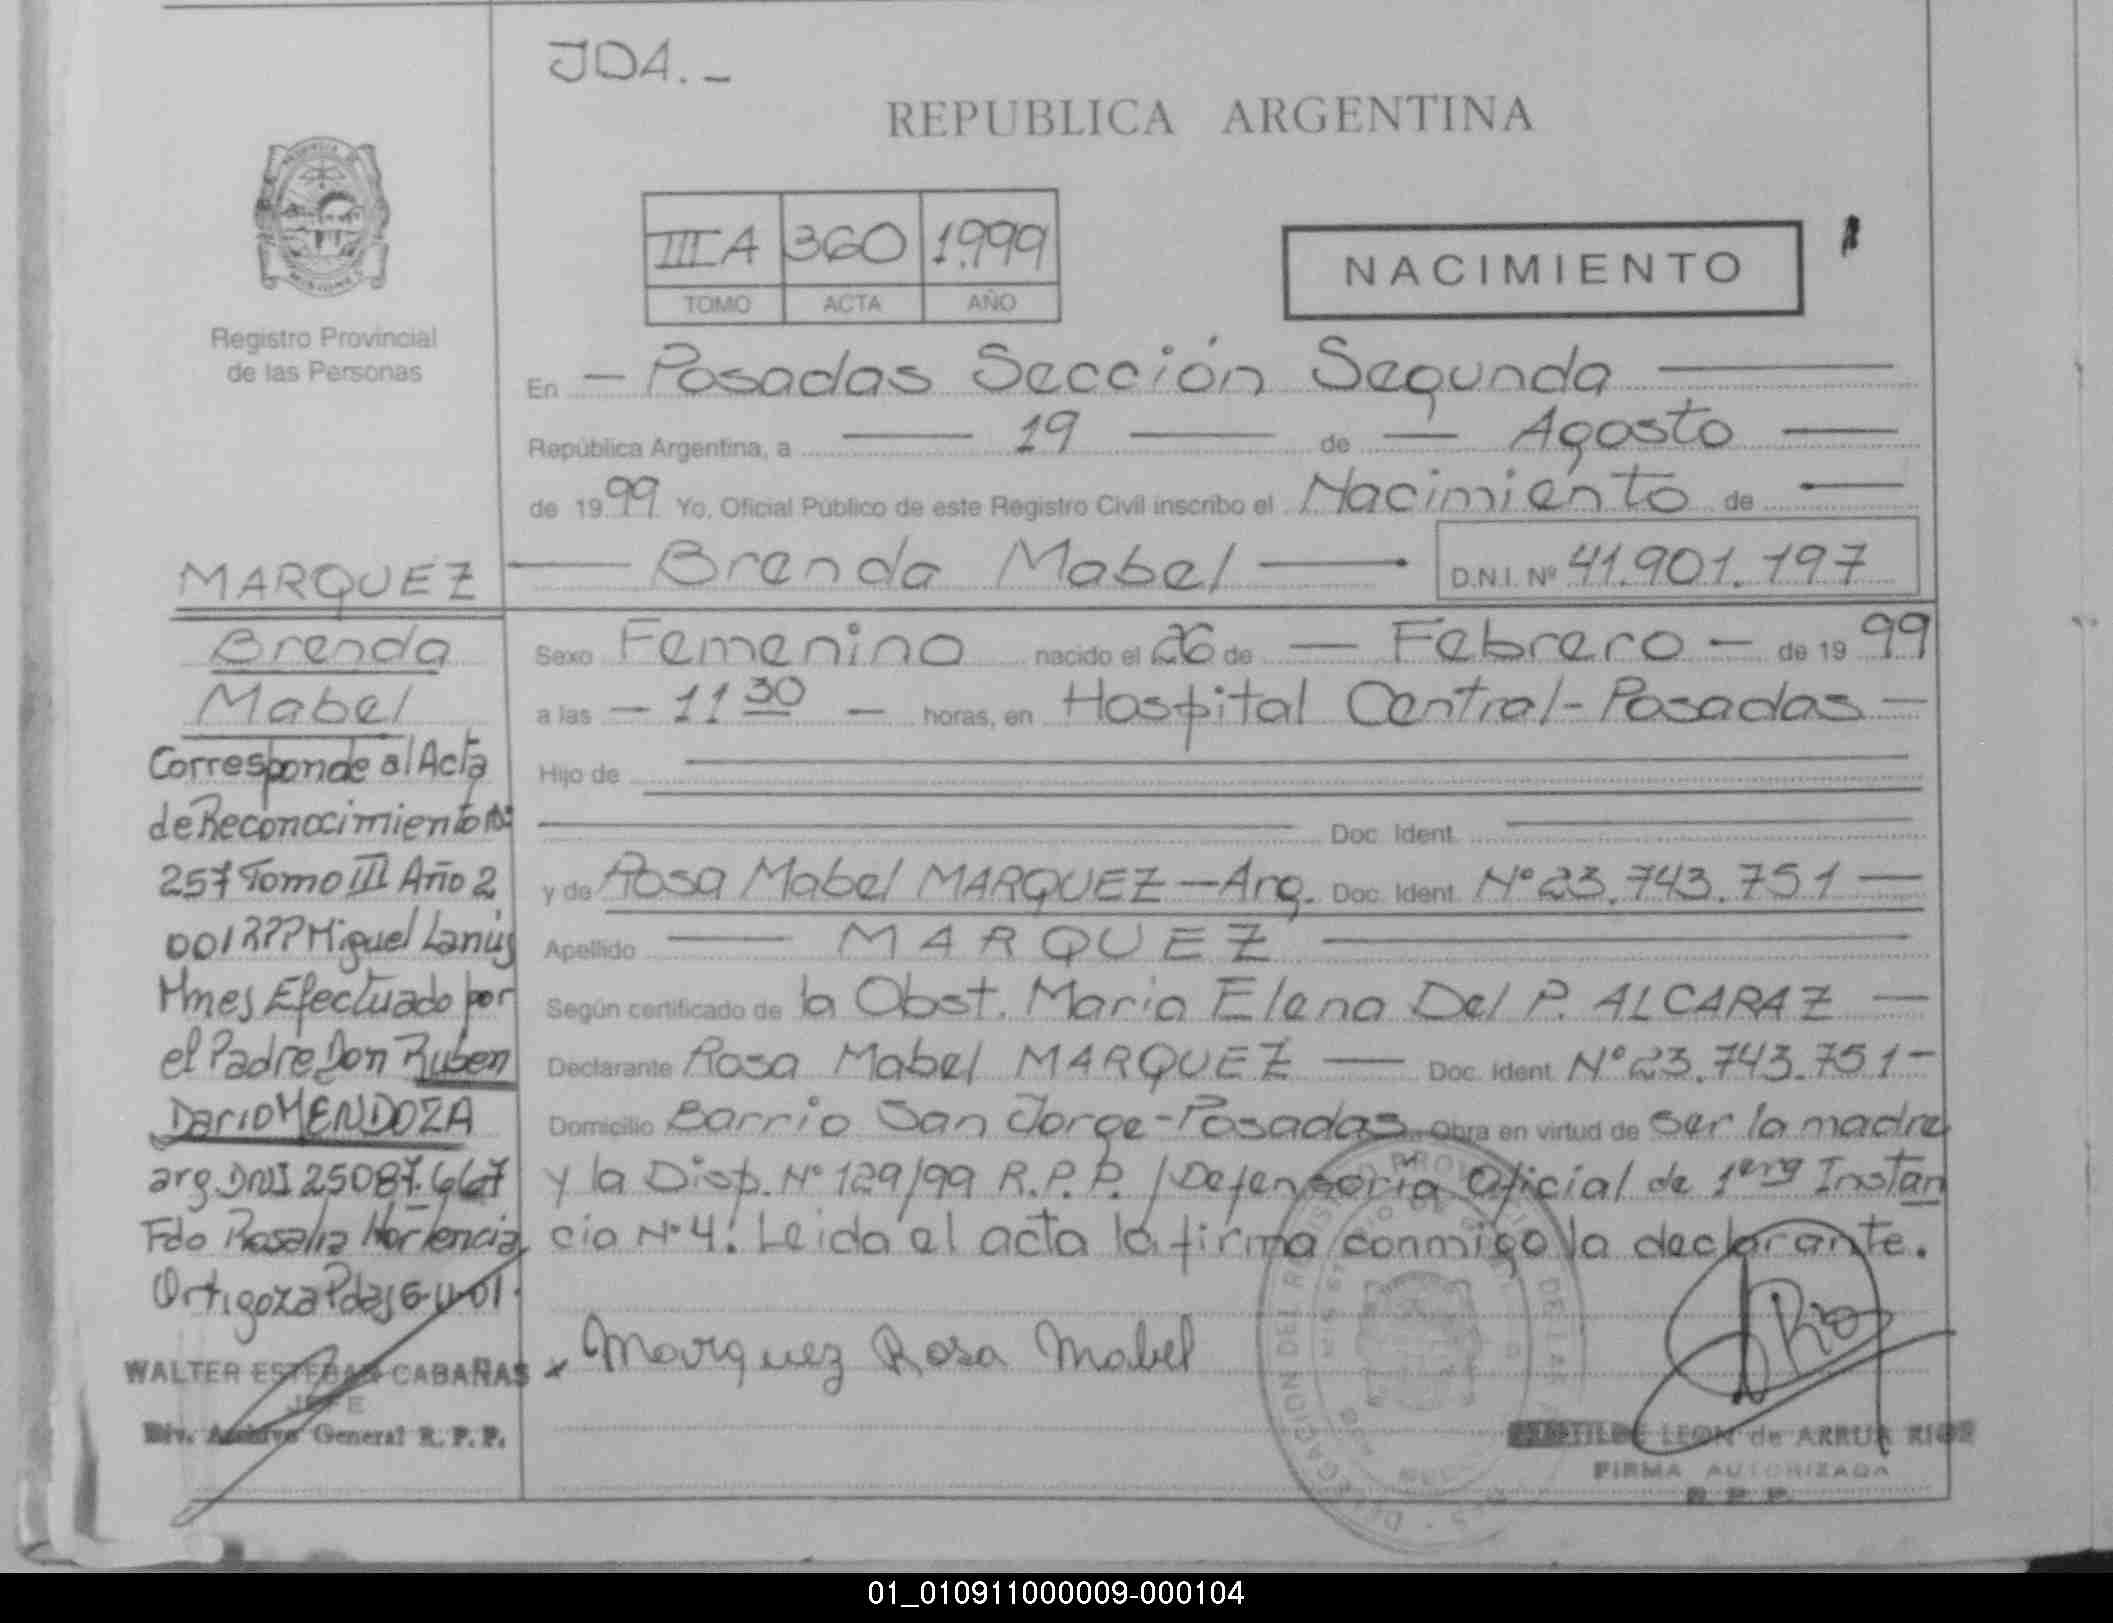 JDA.-
REPUBLICA ARGENTINA
III A 360 1.999
TOMO ACTA AÑO
NACIMIENTO
Registro Provincial
de las Personas
En — Posadas Sección Segunda —
República Argentina, a — 19 — de — Agosto —
de 1999 Yo, Oficial Público de este Registro Civil inscribo el Nacimiento de —
— Brenda Mabel — D.N.I. Nº 41.901.197
Sexo Femenino nacido el 26 de — Febrero — de 1999
a las — 11 30 — horas, en Hospital Central - Posadas —
Hijo de
Doc. Ident.
y de Rosa Mabel MARQUEZ — Arg. Doc. Ident. Nº 23.743.751 —
Apellido — MARQUEZ —
Según certificado de la Obst. Maria Elena Del P. ALCARAZ —
Declarante Rosa Mabel MARQUEZ — Doc. Ident. Nº 23.743.751 —
Domicilio Barrio San Jorge - Posadas. Obra en virtud de ser la madre
y la Disp. Nº 129/99 R.P.P. / Defensoria Oficial de 1era Instan
cia Nº 4. Leida el acta la firma conmigo la declarante.
Marquez Rosa Mabel
LEON de ARRUA RIOS
FIRMA AUTORIZADA
R. P. P.
MARQUEZ
Brenda
Mabel
Corresponde al Acta
de Reconocimiento Nº
257 Tomo III Año 2
001 RPP Miguel Lanús
Mnes Efectuado por
el Padre Don Ruben
Dario MENDOZA
arg DNI 25087.667
Fdo Rosalia Hortencia
Ortigoza Pdas
WALTER ESTEBAN CABAÑAS
JEFE
Div. Archivo General R. P. P.
01_010911000009-000104